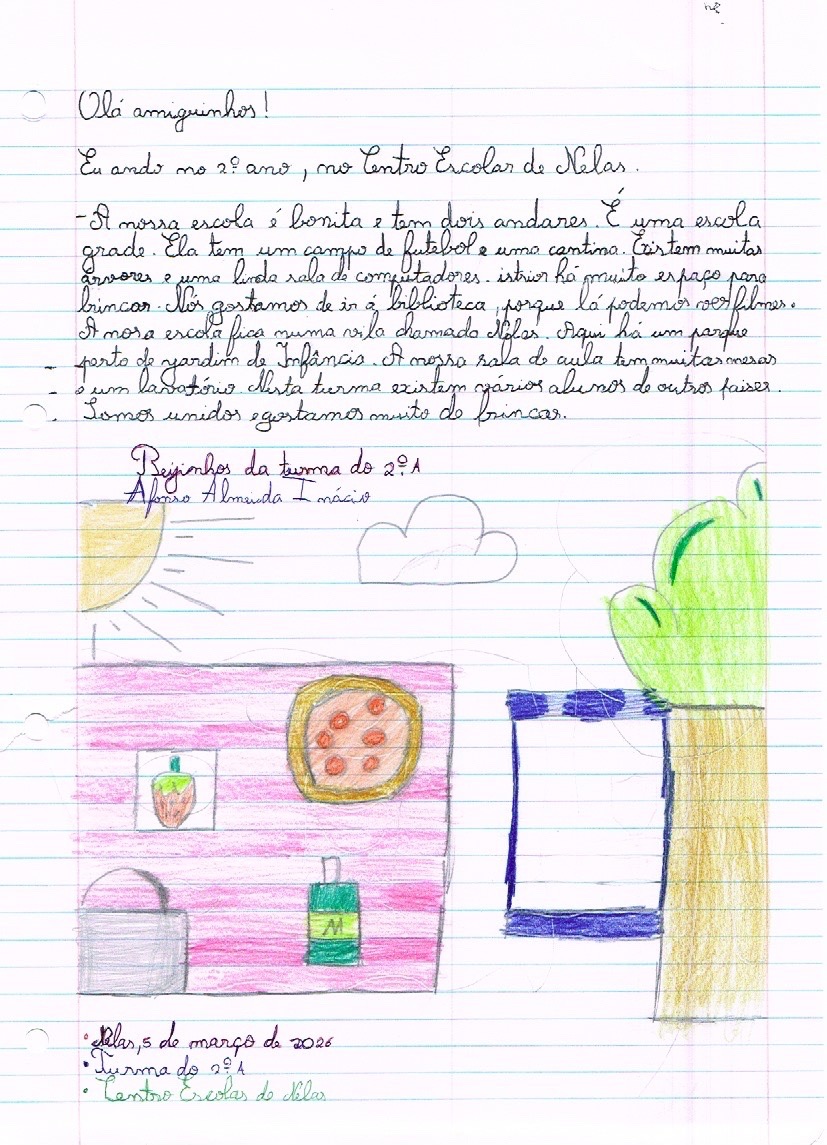 Olá amiguinhos!
Eu ando no 2º ano, no Centro Escolar de Nelas.
-A nossa escola é bonita e tem dois andares. É uma escola
grade. Ela tem um campo de futebol e uma cantina. Existem muitas
árvores e uma linda sala de computadores. há muito espaço para
brincar. Nós gostamos de ir á biblioteca, porque lá podemos filmes.
A nosa escola fica numa vila chamada Nelas. Aqui há um parque
perto do yardim de Infância. A nossa sala de aula tem muitas mesas
e um lavatório. Nesta turma existem vários alunos de outros faises.
Somos unidos e gostamos muito de brincar.
Beijinhos da turma do 2º A
Afonso Almeida Inácio
M
• Nelas, 5 de março de 2026
• Turma do 2º A
• Centro Escolas de Nelas